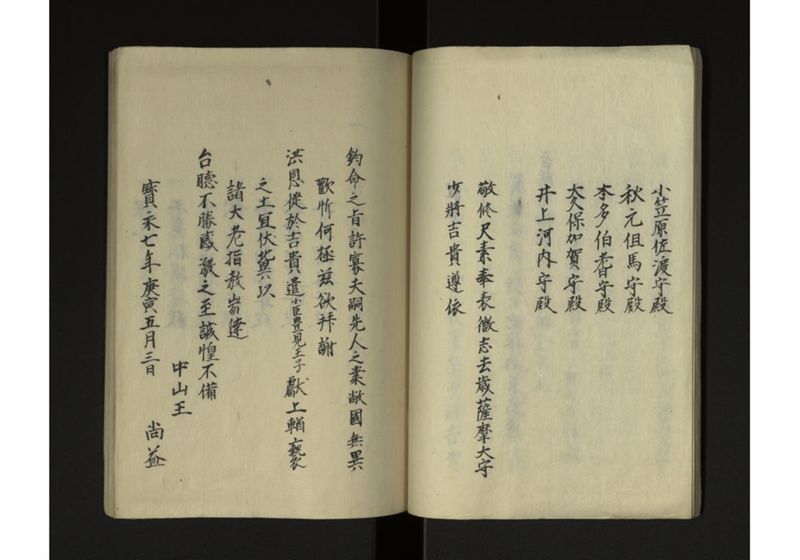 小笠原佐渡守殿
秋元但馬守殿
本多伯耆守殿
大久保加賀守殿
井上河内守殿
敬修尺素奉表微志去歳薩摩大守
少將吉貴遵依
鈞命之旨許寡夫嗣先人之業敝國無異
歡忻何極茲欲拜謝
洪恩從於吉貴遣小臣豊見王子獻上輶褻
之土宜伏冀以
諸大老指教耑達
台聽不勝感激之至誠惶不備
中山王
寶永七年庚寅五月三日 尚益